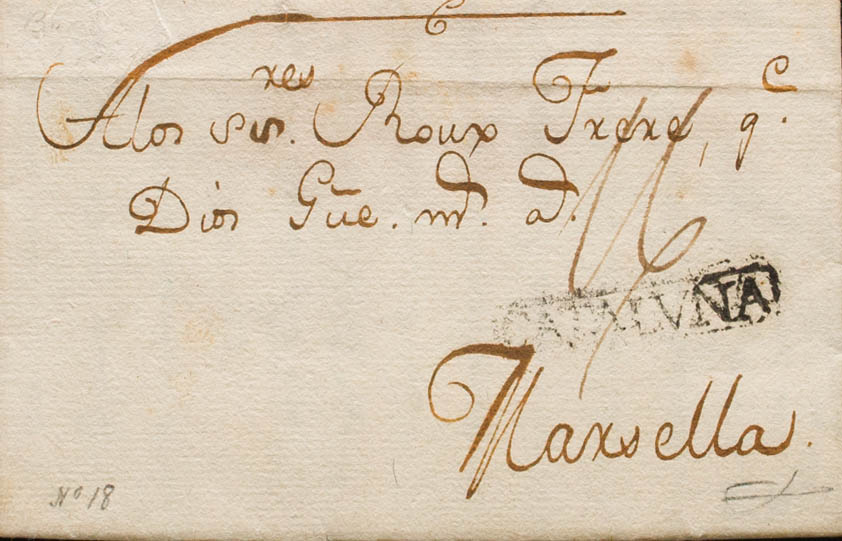 A los SS.res Roux Frere, q.e
Dios Gũe. m.s a.s
CATALUÑA
Marsella.
Nº 18